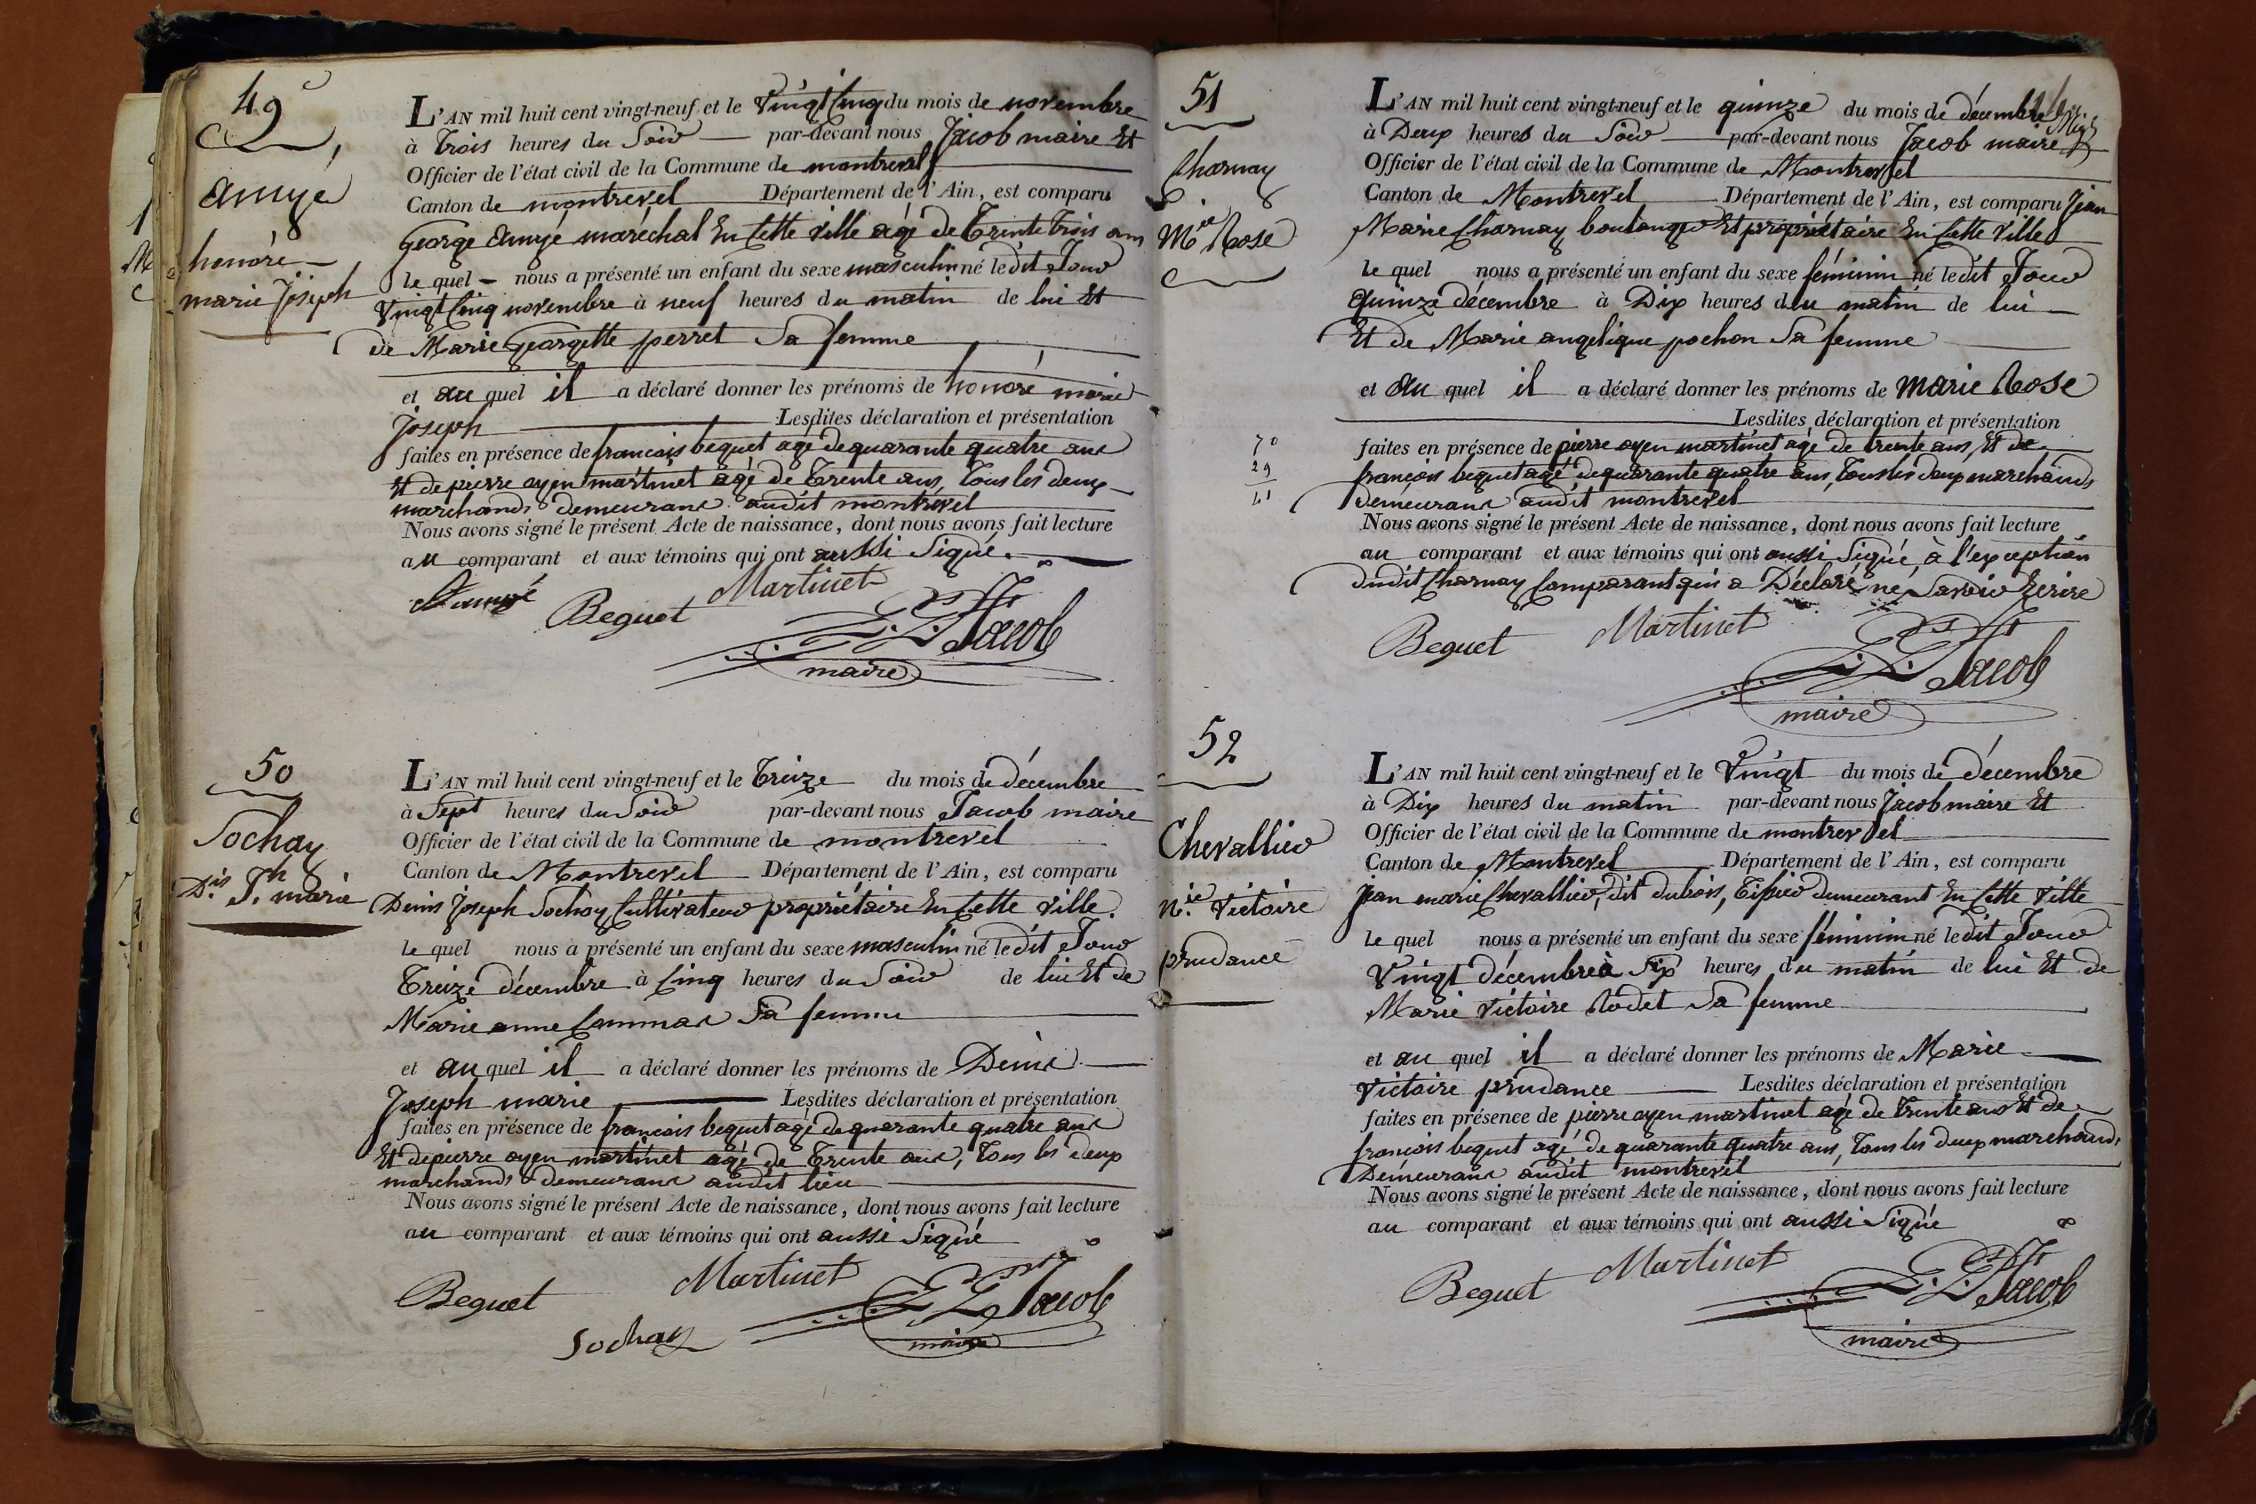 49
amyé
honoré
marie Joseph
L'AN mil huit cent vingt-neuf et le vingt Cinq du mois de novembre
à Trois heures du Soir par-devant nous Jacob maire Et
Officier de l'état civil de la Commune de montrevel
Canton de montrevel Département de l'Ain, est comparu
George amyé maréchal En Cette ville agé de Trente trois ans
le quel nous a présenté un enfant du sexe masculin né ledit Jour
vingt Cinq novembre à neuf heures du matin de lui Et
de Marie Georgette perret Sa femme
et au quel il a déclaré donner les prénoms de honoré marie
Joseph Lesdites déclaration et présentation
faites en présence de francois bequet agé de quarante quatre ans
Et de pierre ayen martinet agé de Trente ans, Tous les deux
marchands demeurans audit montrevel
Nous avons signé le présent Acte de naissance, dont nous avons fait lecture
au comparant et aux témoins qui ont aussi Signé.
Bequet
Martinet
Jacob
maire
50
Sochay
D.is J.h marie
L'AN mil huit cent vingt-neuf et le Treize du mois de décembre
à Sept heures du Soir par-devant nous Jacob maire
Officier de l'état civil de la Commune de montrevel
Canton de Montrevel Département de l'Ain, est comparu
Denis Joseph Sochay Cultivateur propriétaire En Cette ville.
le quel nous a présenté un enfant du sexe masculin né ledit Jour
Treize décembre à Cinq heures du Soir de lui Et de
Marie anne Commas Sa femme
et au quel il a déclaré donner les prénoms de Denis
Joseph marie Lesdites déclaration et présentation
faites en présence de francois bequet agé de quarante quatre ans
Et de pierre ayen martinet agé de Trente ans, Tous les deux
marchands demeurans audit lieu
Nous avons signé le présent Acte de naissance, dont nous avons fait lecture
au comparant et aux témoins qui ont aussi Signé
Bequet
Martinet
Sochay
Jacob
maire
51
Charnay
M.ie Rose
70
29
41
L'AN mil huit cent vingt-neuf et le quinze du mois de décembre
à Deux heures du Soir par-devant nous Jacob maire
Officier de l'état civil de la Commune de Montrevel
Canton de Montrevel Département de l'Ain, est comparu Jean
Marie Charnay boulanger Et propriétaire En Cette ville
le quel nous a présenté un enfant du sexe féminin né ledit Jour
quinze décembre à Dix heures du matin de lui
Et de Marie angelique pochon Sa femme
et au quel il a déclaré donner les prénoms de Marie Rose
Lesdites déclaration et présentation
faites en présence de pierre ayen martinet agé de trente ans, Et de
françois bequet agé de quarante quatre ans, tous les deux marchands
demeurans audit montrevel
Nous avons signé le présent Acte de naissance, dont nous avons fait lecture
au comparant et aux témoins qui ont aussi Signé, à l'exception
dudit Charnay Comparant qui a Déclaré ne Savoir Ecrire
Bequet
Martinet
Jacob
maire
52
Chevallier
M.ie victoire
prudance
L'AN mil huit cent vingt-neuf et le vingt du mois de décembre
à Dix heures du matin par-devant nous Jacob maire Et
Officier de l'état civil de la Commune de montrevel
Canton de Montrevel Département de l'Ain, est comparu
Jean marie Chevallier, dit dubois, Tissier demeurant En Cette ville
le quel nous a présenté un enfant du sexe féminin né ledit Jour
vingt décembre à Six heures du matin de lui Et de
Marie victoire Rodet Sa femme
et au quel il a déclaré donner les prénoms de Marie
victoire prudance Lesdites déclaration et présentation
faites en présence de pierre ayen martinet agé de trente ans Et de
françois bequet agé de quarante quatre ans, tous les deux marchands
Demeurans audit montrevel
Nous avons signé le présent Acte de naissance, dont nous avons fait lecture
au comparant et aux témoins qui ont aussi Signé
Bequet
Martinet
Jacob
maire